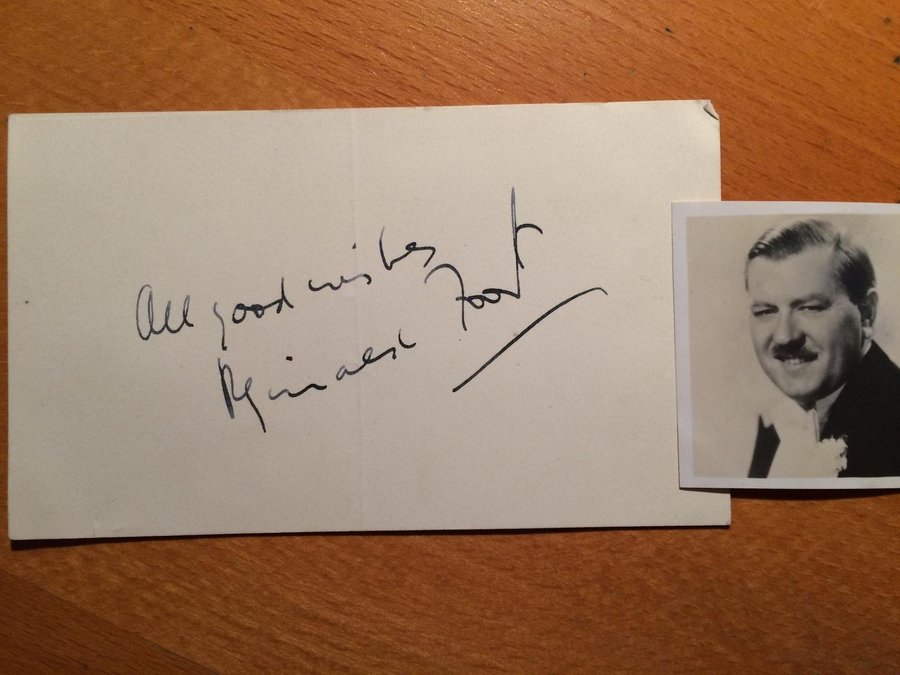 All good wishes
Reginald Foort